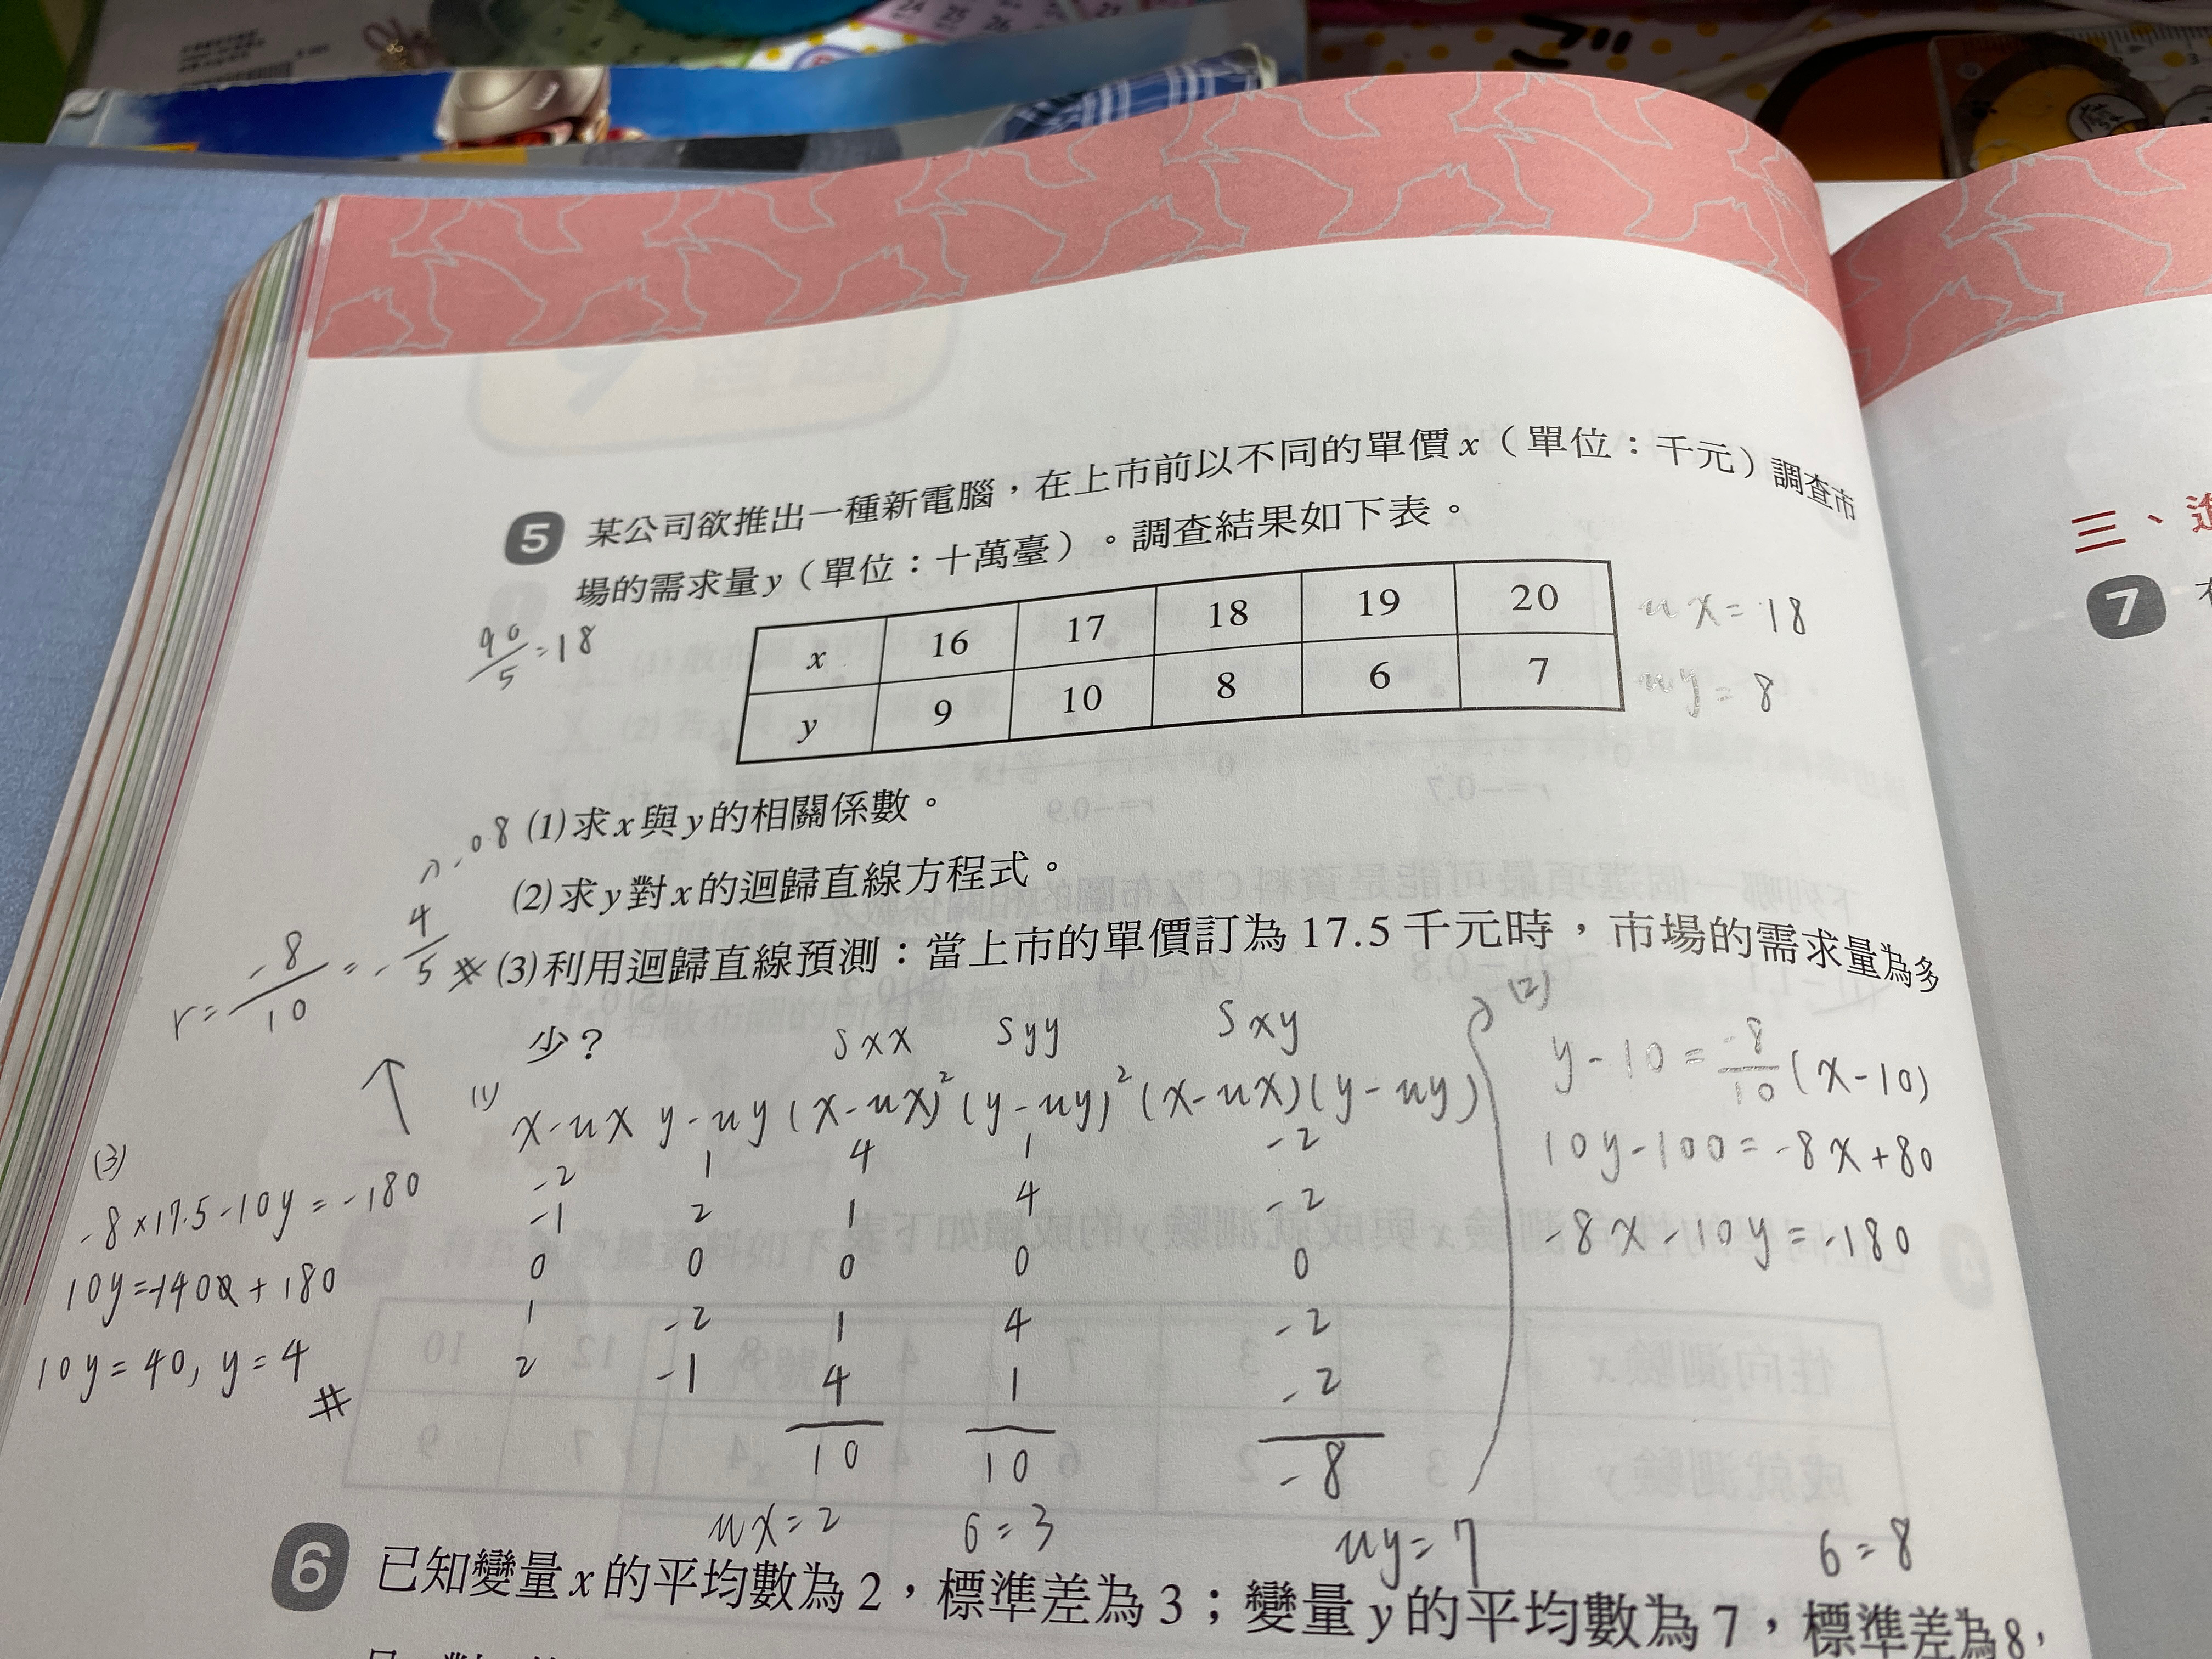 5 某公司欲推出一種新電腦，在上市前以不同的單價x（單位：千元）調查市
場的需求量y（單位：十萬臺）。調查結果如下表。
90/5=18
x 16 17 18 19 20
y 9 10 8 6 7
ux=18
uy=8
(1)求x與y的相關係數。
→-0.8
(2)求y對x的迴歸直線方程式。
(3)利用迴歸直線預測：當上市的單價訂為17.5千元時，市場的需求量為多
少？
r=-8/10=-4/5 #
Sxx Syy Sxy
(1) x-ux y-uy (x-ux)² (y-uy)² (x-ux)(y-uy)
-2 1 4 1 -2
-1 2 1 4 -2
0 0 0 0 0
1 -2 1 4 -2
2 -1 4 1 -2
10 10 -8
(2)
y-10=-8/10(x-10)
10y-100=-8x+80
-8x-10y=-180
(3)
-8×17.5-10y=-180
10y=-140+180
10y=40, y=4
#
ux=2 6=3 uy=7 6=8
6 已知變量x的平均數為2，標準差為3；變量y的平均數為7，標準差為8，
三、
7